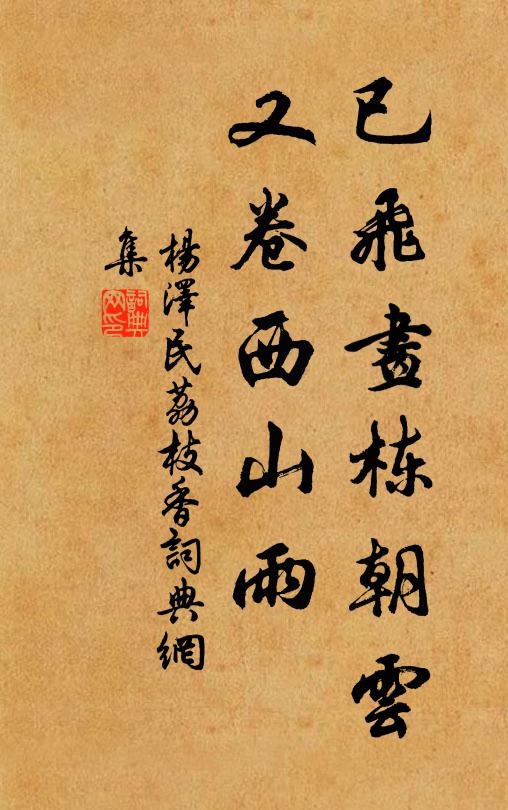 已飛畫栋朝雲
又卷西山雨
楊澤民荔枝香詞典網
集
詞典網印